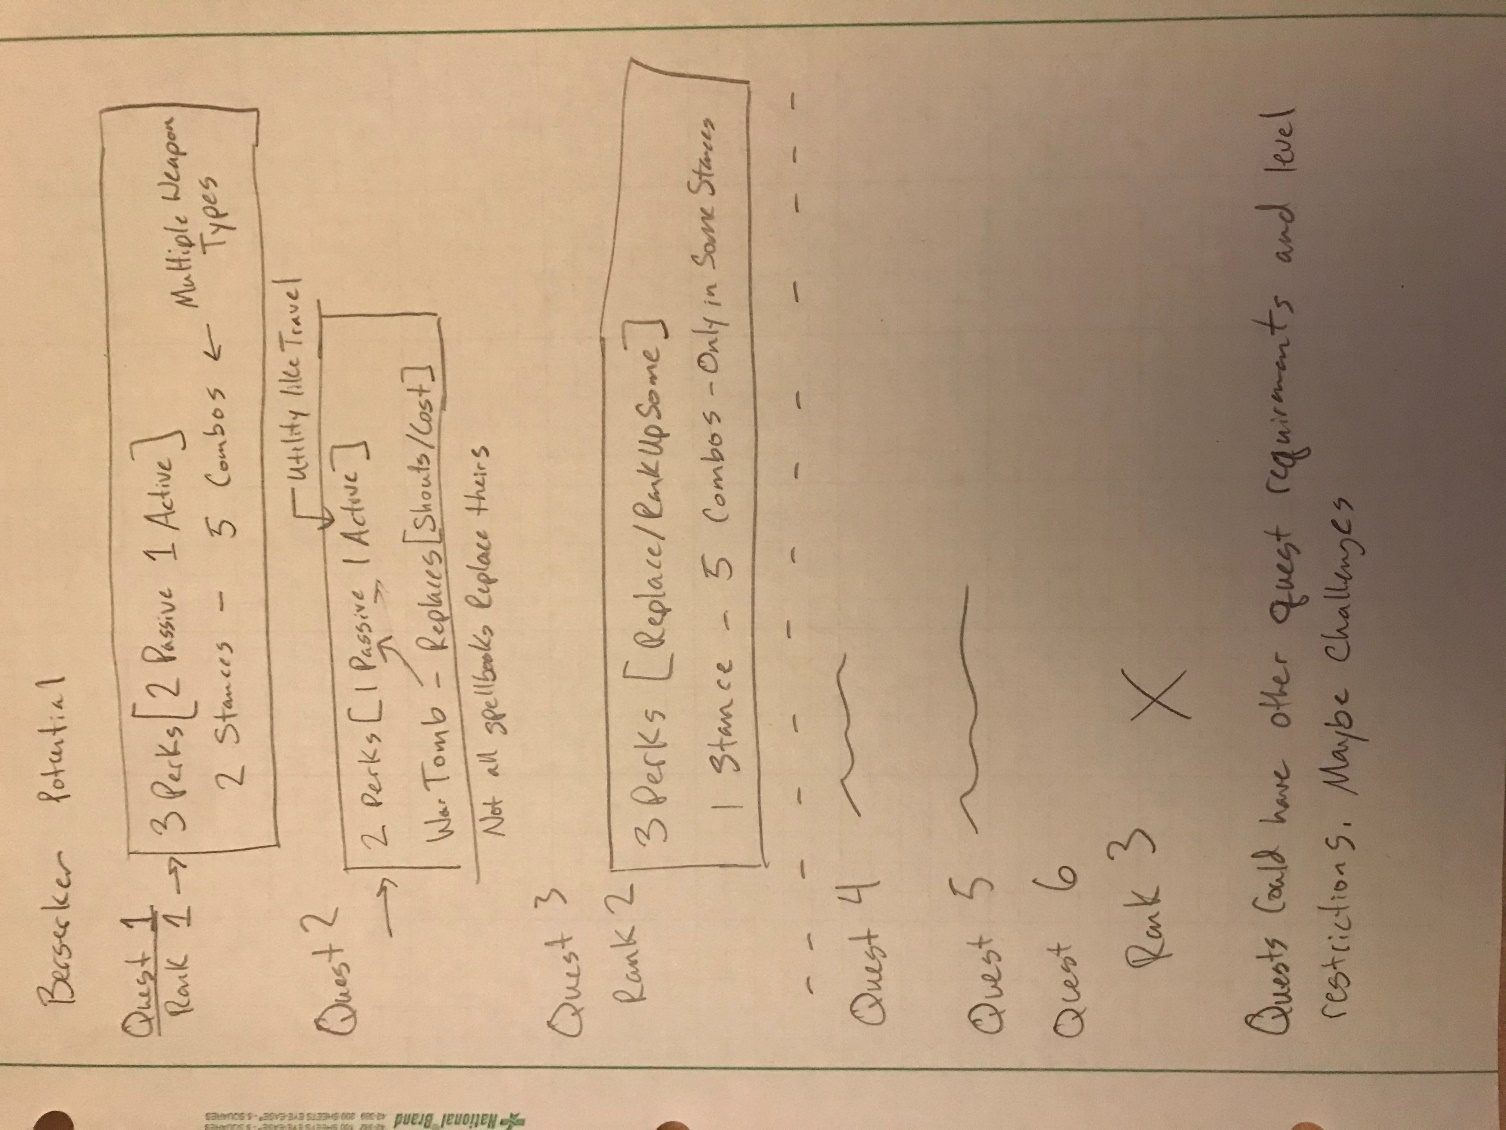 Berserker Potential
Quest 1
Rank 1 → 3 Perks [2 Passive 1 Active]
2 Stances - 5 Combos ← Multiple Weapon
Types
Utility like Travel
Quest 2
→ 2 Perks [1 Passive 1 Active]
War Tomb - Replaces [Shouts/Cost]
Not all spellbooks Replace theirs
Quest 3
Rank 2
3 Perks [Replace/RankUpSome]
1 Stance - 5 Combos - Only in Some Stances
Quest 4
Quest 5
Quest 6
Rank 3 X
Quests Could have other quest requirements and level
restrictions. Maybe Challenges
National Brand